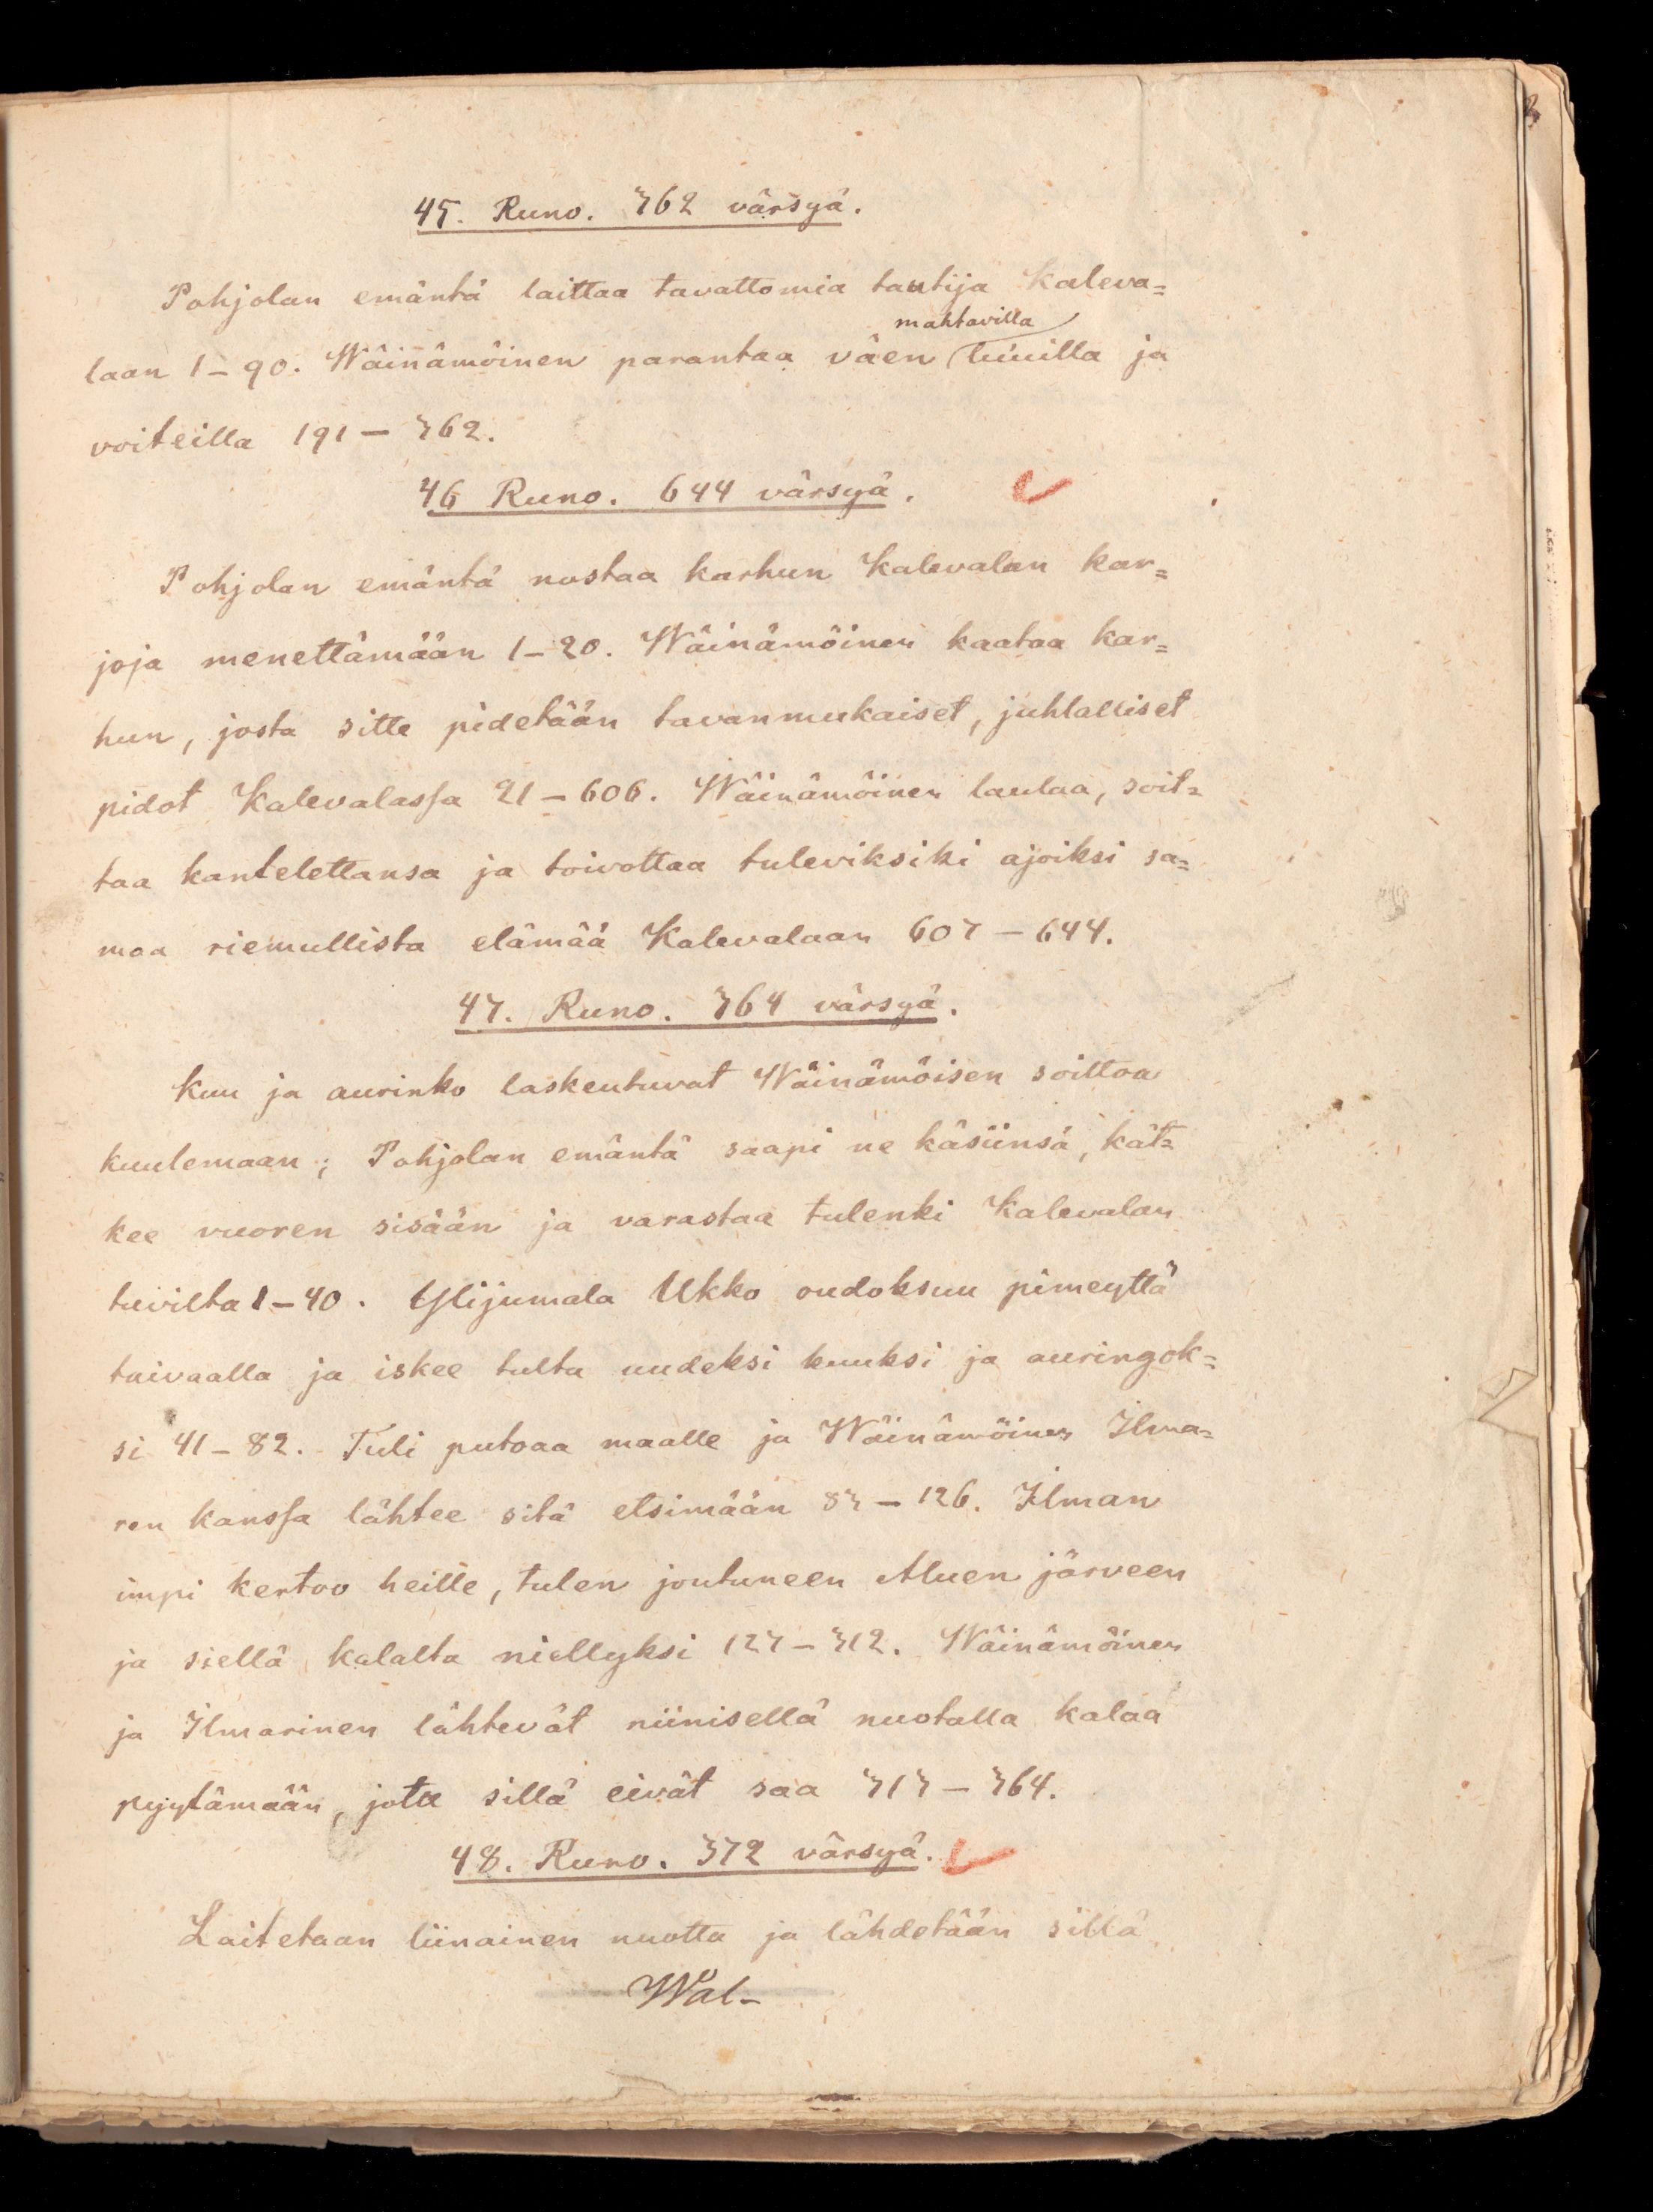 45. Runo. 362 värsyä.
Pohjolan emäntä laittaa tavattomia tautija Kaleva=
mahtavilla
laan 1-90. Wäinämöinen parantaa väen luvuilla ja
voiteilla 191-362.
46 Runo. 644 värsyä.
Pohjolan emäntä nostaa karhun Kalevalan kar=
joja menettämään 1-20. Wäinämöinen kaataa kar=
hun, josta sitte pidetään tavanmukaiset, juhlalliset
pidot Kalevalassa 21-606. Wäinämöinen laulaa, soit=
taa kantelettansa ja toivottaa tuleviksiki ajoiksi sa=
maa riemullista elämää Kalevalaan 607-644.
47. Runo. 364 värsyä.
Kuu ja aurinko laskeutuvat Wäinämöisen soittoa
kuulemaan; Pohjolan emäntä saapi ne käsiinsä, kät=
kee vuoren sisään ja varastaa tulenki Kalevalan
tuvilta 1-40. Ylijumala Ukko oudoksuu pimeyttä
taivaalla ja iskee tulta uudeksi kuuksi ja auringok=
si 41-82. Tuli putoaa maalle ja Wäinämöinen Ilma=
ren kanssa lähtee sitä etsimään 83-126. Ilman
impi kertoo heille, tulen joutuneen Aluen järveen
ja siellä kalalta niellyksi 127-312. Wäinämöinen
ja Ilmarinen lähtevät niinisellä nuotalla kalaa
pyytämään, jota sillä eivät saa 313-364.
48. Runo. 372 värsyä.
Laitetaan liinainen nuotta ja lähdetään sillä
Wal-